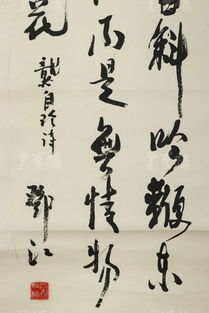 日斜吟鞭东
不是無情物
花
龔自珍诗
鄧江